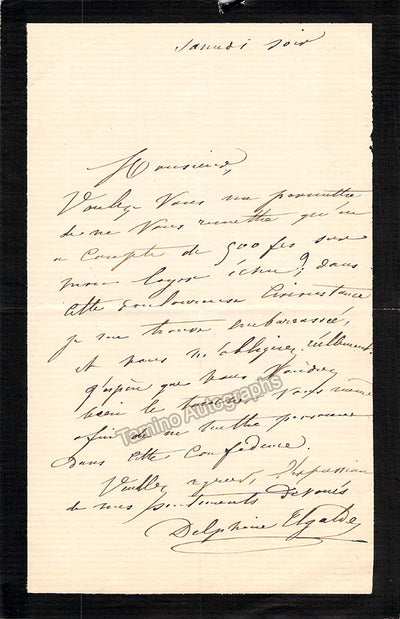 Samedi soir
Monsieur,
Voulez Vous me permettre
de ne Vous remettre qu'un
a compte de 500 frs sur
mon loyer échu? dans
cette douloureuse Circonstance
je me trouve embarrassée,
et vous m'obligerez réellement.
J'espère que vous Voudrez
bien le vous même
afin de ne mettre personne
dans cette confidence.
Veuillez agréer, l'expression
de mes sentiments dévoués
Delphine Ugalde
Tamino Autographs